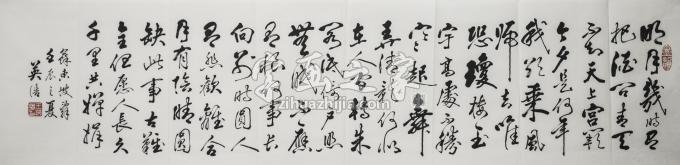 明月幾時有
把酒問青天
不知天上宮闕
今夕是何年
我欲乘風
歸去唯
恐瓊樓玉
宇高處不勝
寒起舞
弄清影何似
在人間轉朱
閣低綺户照
無眠不應
有恨何事長
向别時圓人
有悲歡離合
月有陰晴圓
缺此事古難
全但願人長久
千里共嬋娟
蘇東坡詞
壬辰之夏
zihuazhijia.com